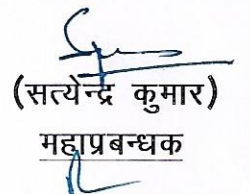 (सत्येन्द्र कुमार)
महाप्रबन्धक